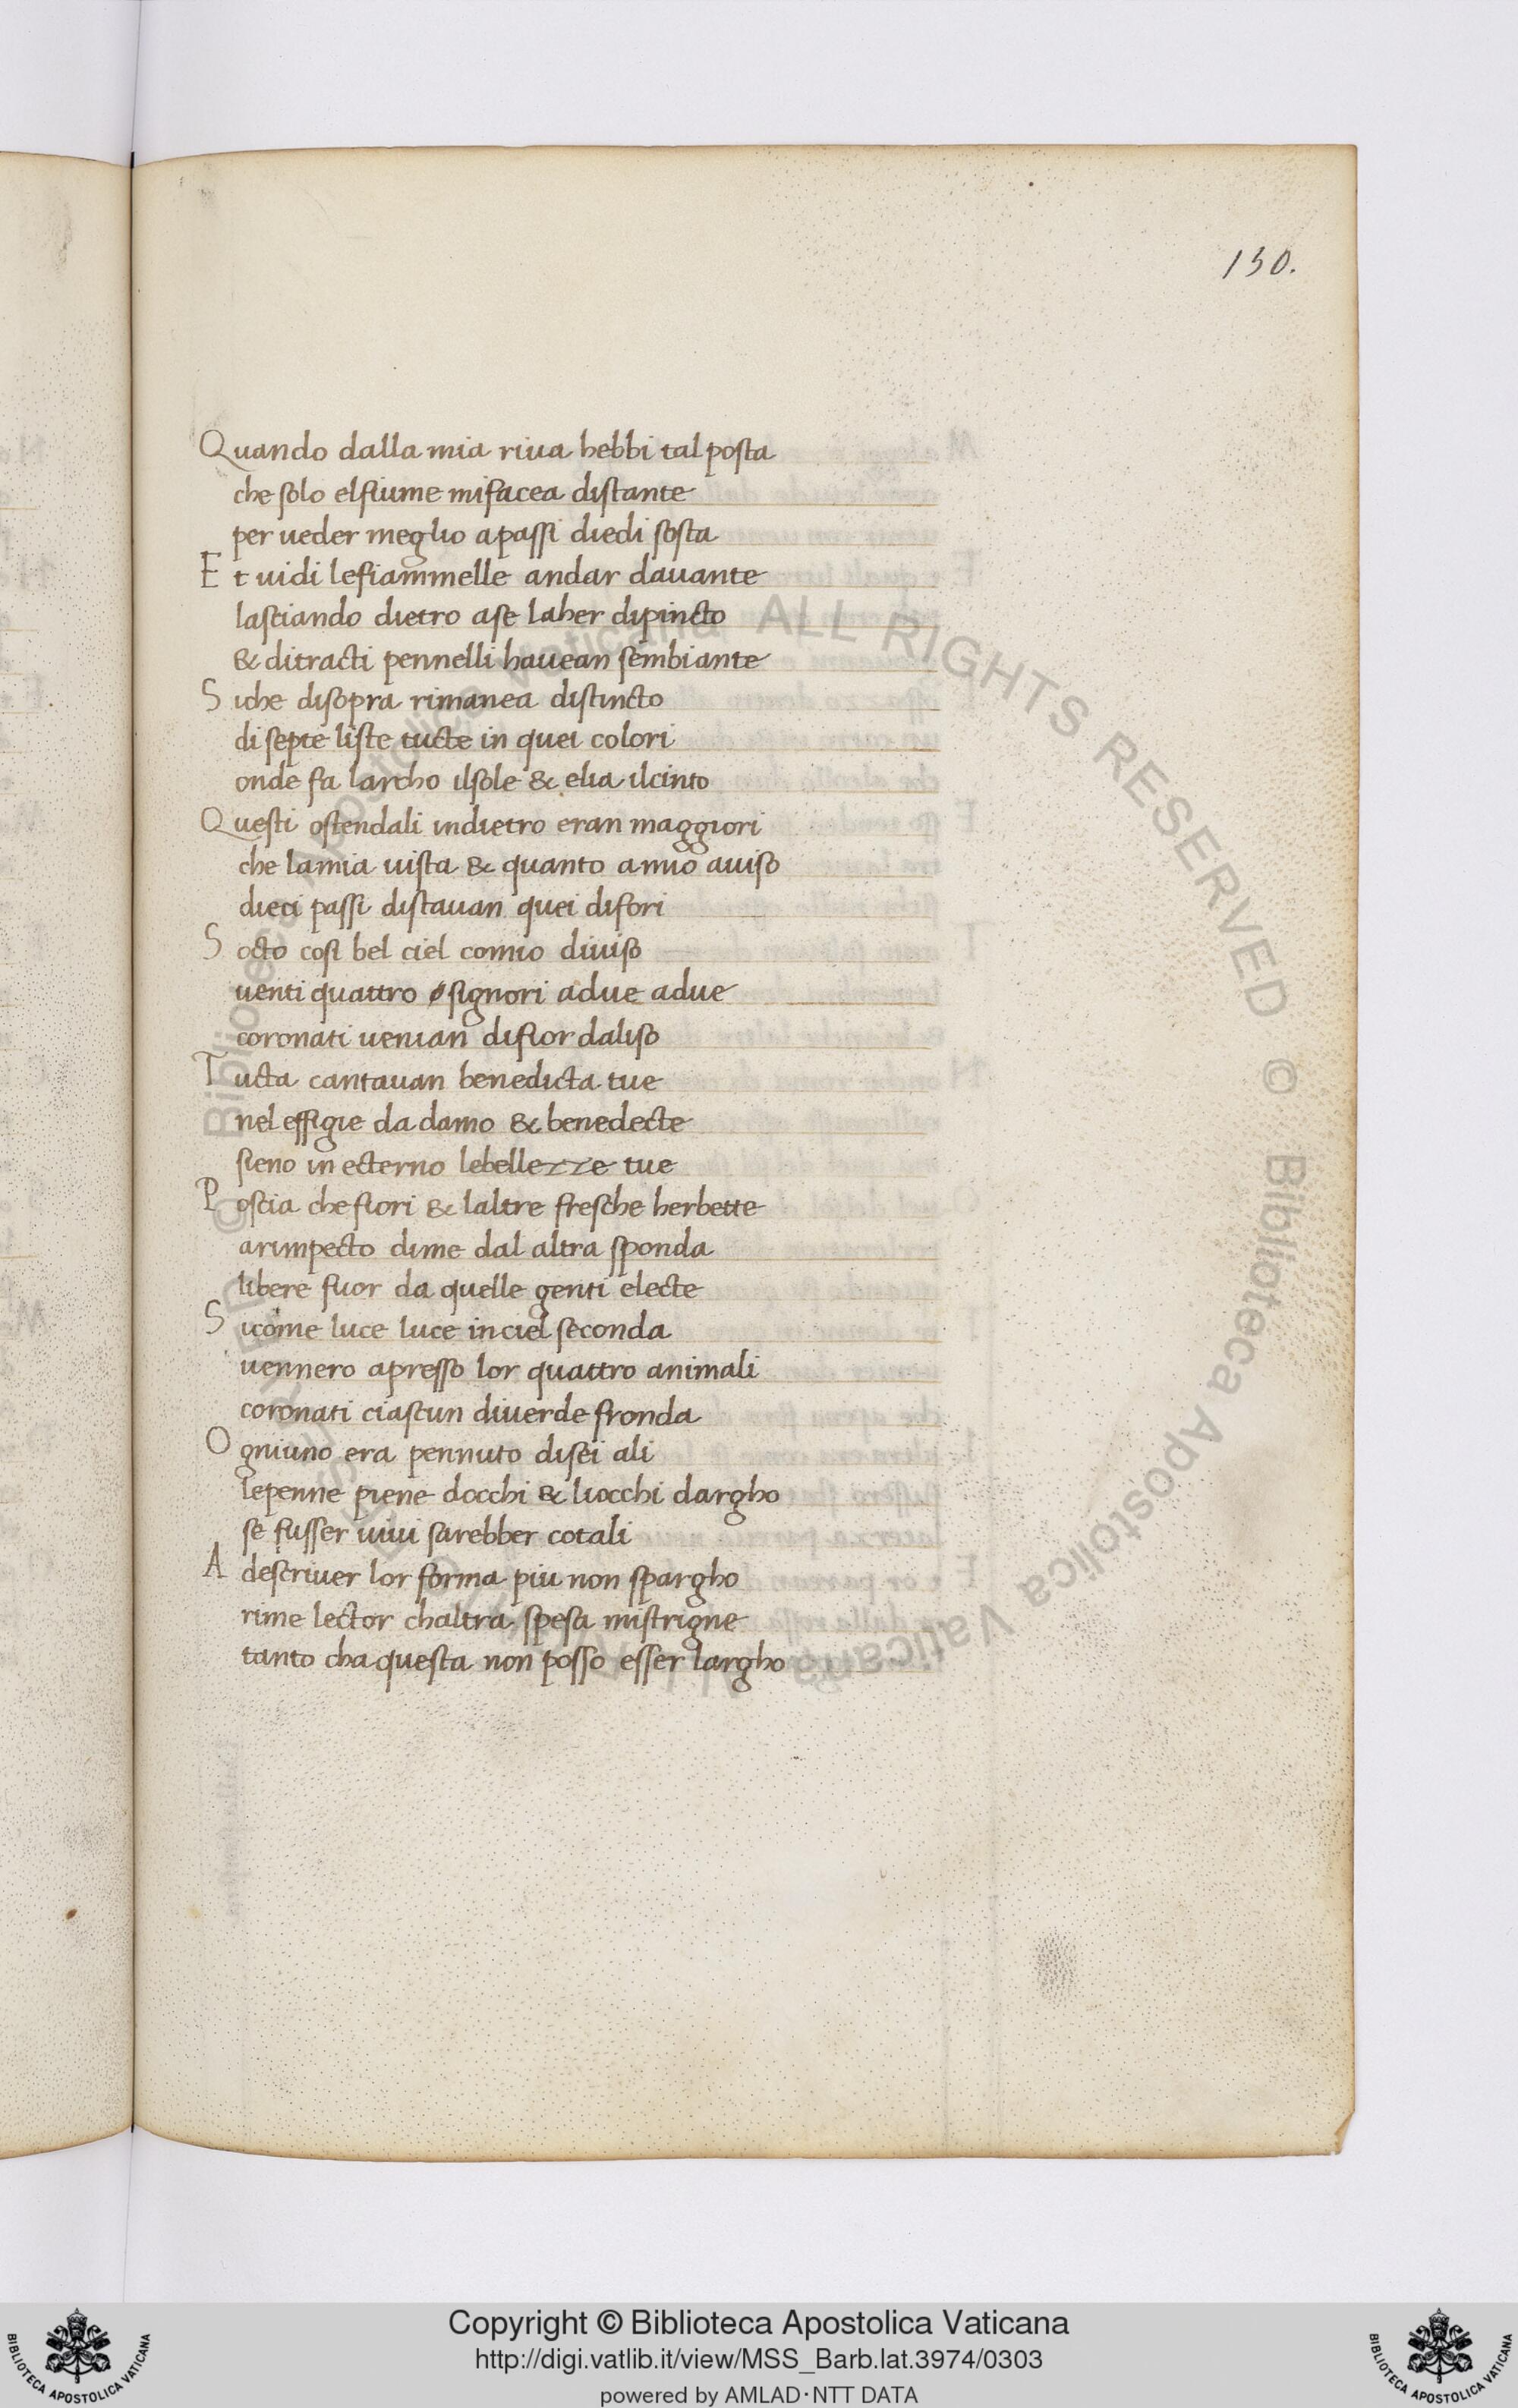 150.
Quando dalla mia riua hebbi tal posta
che solo elfiume mifacea distante
per ueder meglio apassi diedi sosta
Et uidi lefiammelle andar dauante
lasciando dietro ase laher dipincto
& ditracti pennelli hauean sembiante
Siche disopra rimanea distincto
di septe liste tucte in quei colori
onde fa larcho ilsole & elia ilcinto
Questi ostendali indietro eran maggiori
che lamia uista & quanto amio auiso
dieci passi distauan quei difori
Socto cosi bel ciel comio diuiso
uenti quattro signori adue adue
coronati uenian difior daliso
Tucta cantauan benedicta tue
nel effigie da damo & benedecte
sieno in ecterno lebellezze tue
Poscia che fiori & laltre fresche herbette
arimpecto dime dal altra sponda
libere fuor da quelle genti electe
Sicome luce luce inciel seconda
uennero apresso lor quattro animali
coronati ciascun diuerde fronda
Ogniuno era pennuto disei ali
lepenne piene docchi & liocchi dargho
se fusser uiui sarebber cotali
A descriuer lor forma piu non spargho
rime lector chaltra spesa mistrigne
tanto cha questa non posso esser largho
© Biblioteca Apostolica Vaticana ALL RIGHTS RESERVED © Biblioteca Apostolica Vaticana
Copyright © Biblioteca Apostolica Vaticana
http://digi.vatlib.it/view/MSS_Barb.lat.3974/0303
powered by AMLAD·NTT DATA
BIBLIOTECA APOSTOLICA VATICANA
BIBLIOTECA APOSTOLICA VATICANA